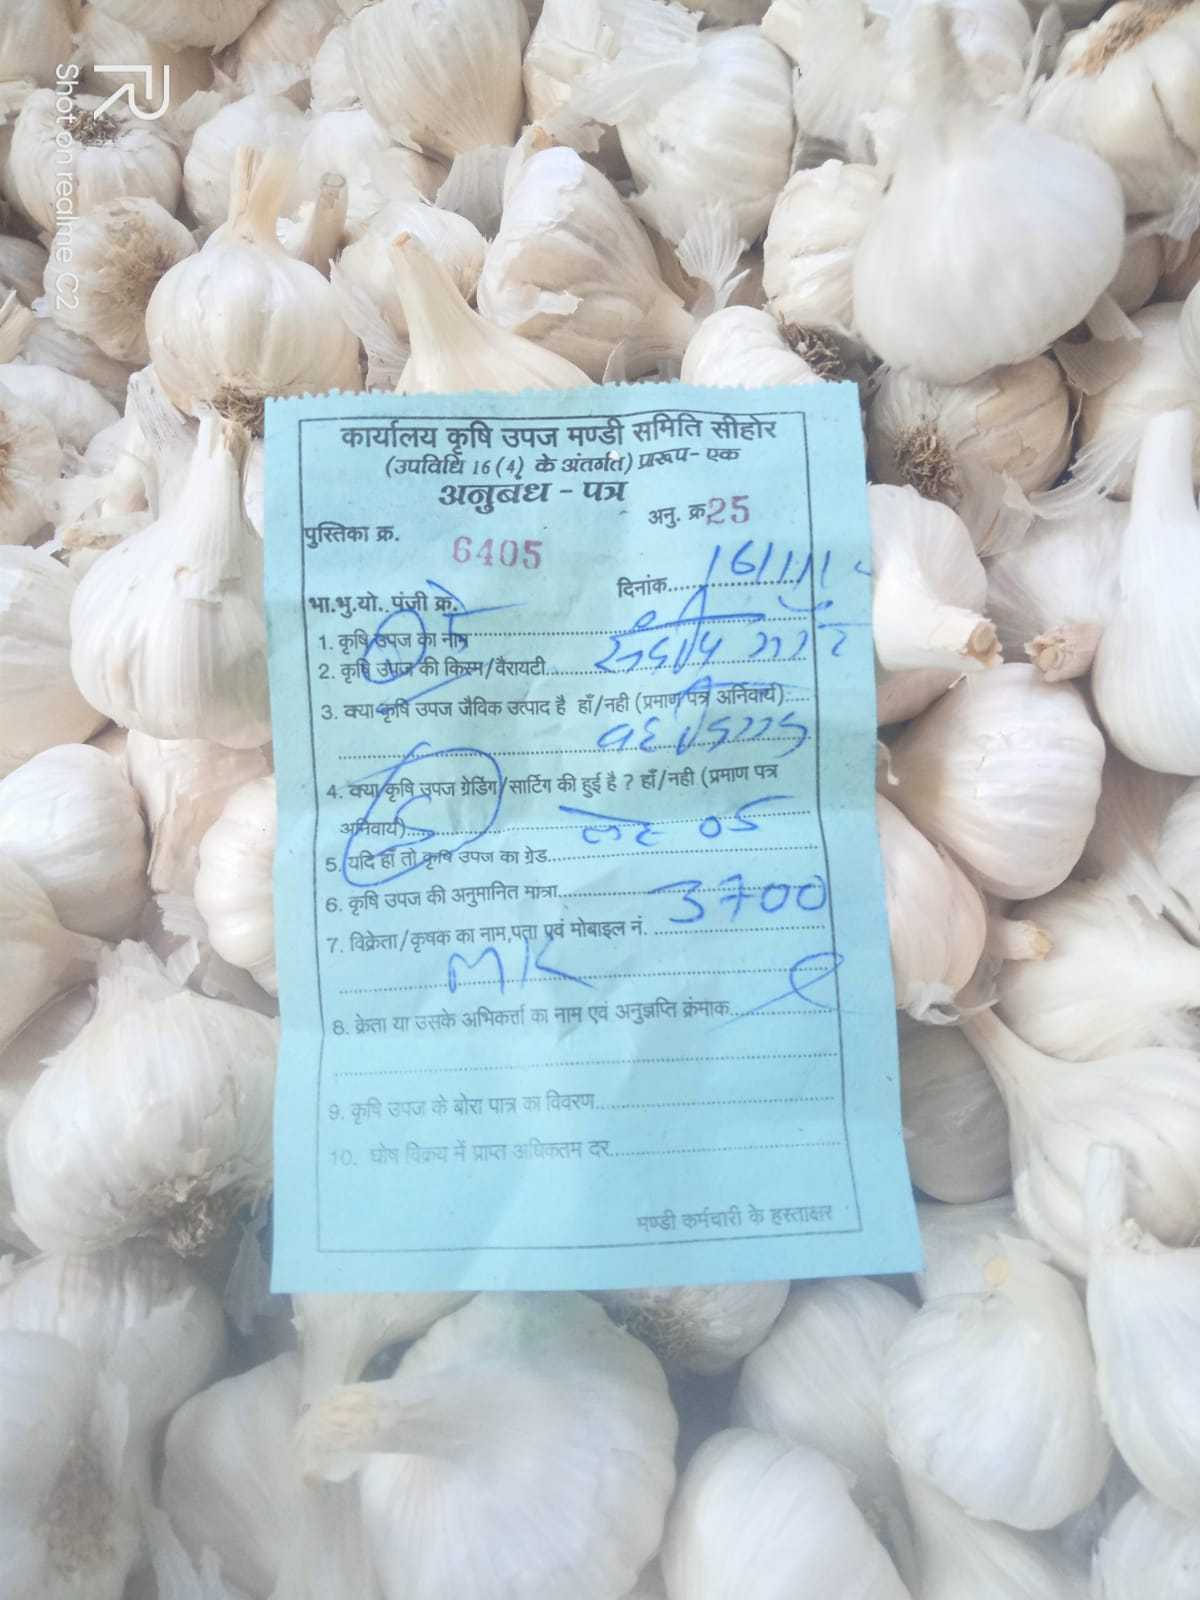 कार्यालय कृषि उपज मण्डी समिति सीहोर
(उपविधि 16 (4) के अंतर्गत) प्रारूप- एक
अनुबंध - पत्र
पुस्तिका क्र. 6405 अनु. क्र 25
दिनांक 16/11/
भा.भु.यो. पंजी क्र.
1. कृषि उपज का नाम
2. कृषि उपज की किस्म/वैरायटी
3. क्या कृषि उपज जैविक उत्पाद है हाँ/नही (प्रमाण पत्र अर्निवार्य)
4. क्या कृषि उपज ग्रेडिंग/सार्टिग की हुई है ? हाँ/नही (प्रमाण पत्र
अनिवार्य) 05
5. यदि हाँ तो कृषि उपज का ग्रेड
6. कृषि उपज की अनुमानित मात्रा 3700
7. विक्रेता/कृषक का नाम,पता एवं मोबाइल नं.
MK
8. क्रेता या उसके अभिकर्त्ता का नाम एवं अनुज्ञप्ति क्रंमाक
9. कृषि उपज के बोरा पात्र का विवरण
10. घोष विक्रय में प्राप्त अधिकतम दर
मण्डी कर्मचारी के हस्ताक्षर
R
Shot on realme C2